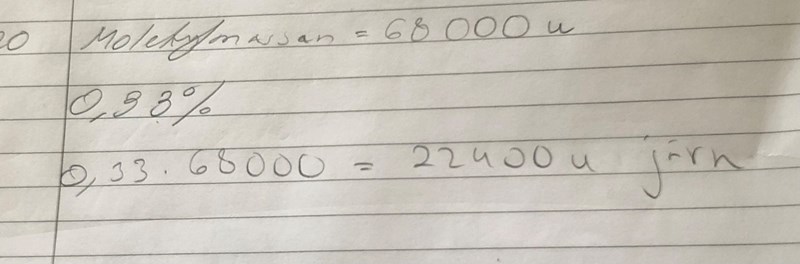 20 Molekylmassan = 68 000 u
0,33%
0,33 · 68000 = 22400 u järn